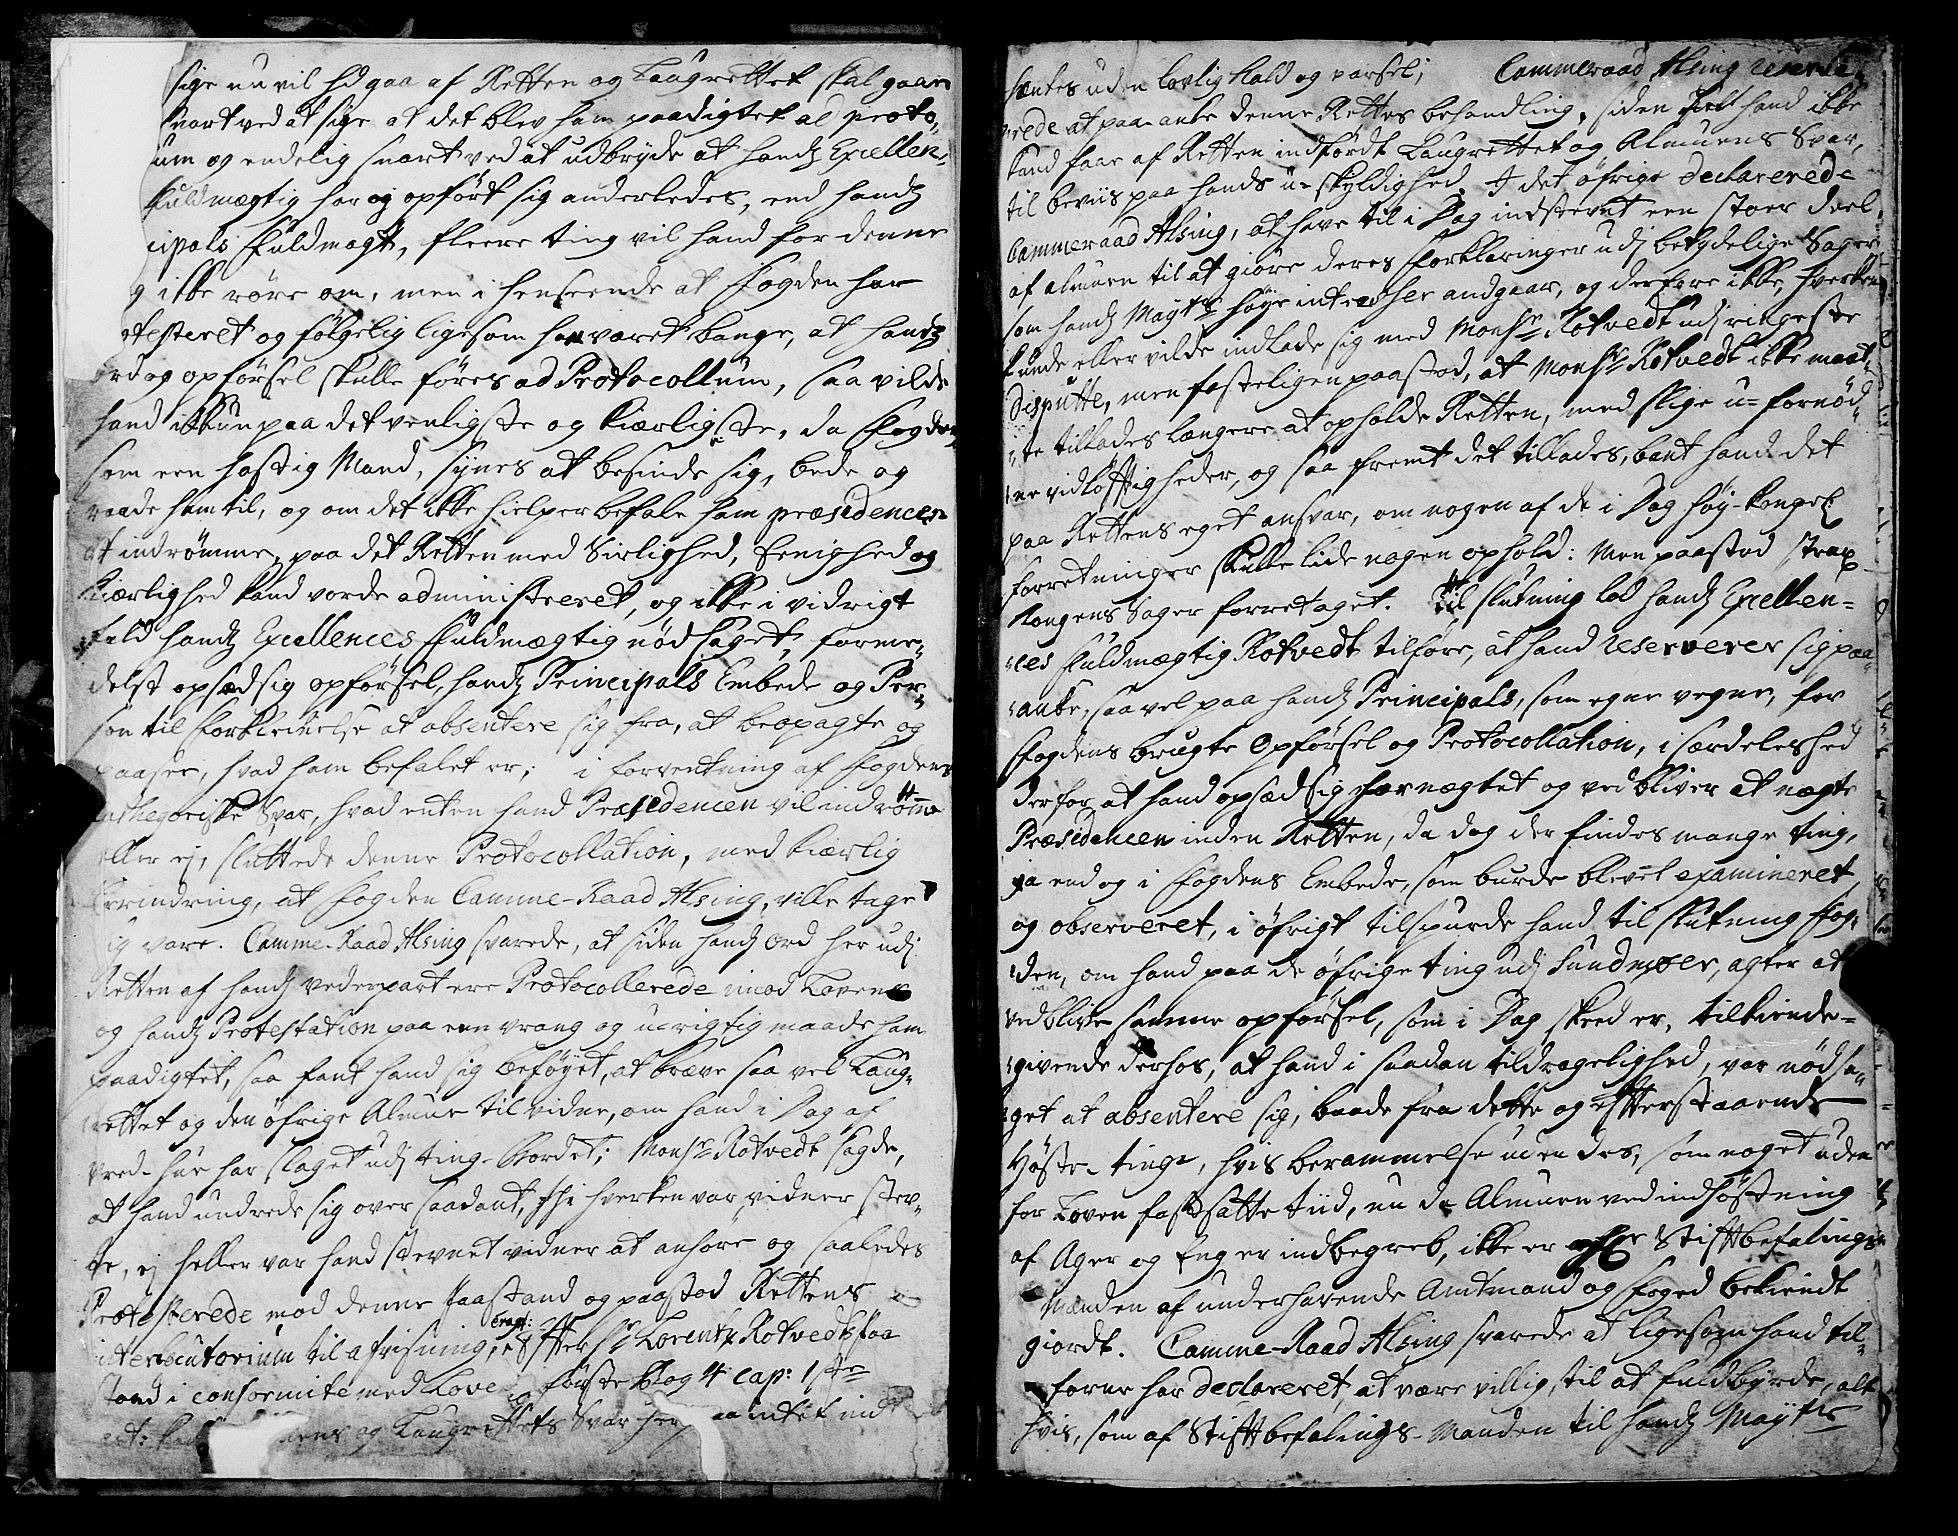 sige nu vil hd gaa af Retten og Laugrettet skal gaae
snart ved at sige at det blev ham paadigtet al proto,
um og endelig snart ved at udbryde at handz Excellen,,
fuldmægtig har og opført sig anderledes, end handz
cipals fuldmagt, fleere ting vil hand for denne
g ikke røre om, men i henseende at Fogden har
otesteret og følgelig ligesom har været bange, at handz
ord og opførsel skulle føres ad Protocollum, saa vilde
hand ikkun paa det venligste og kiærligste, da Fogden,
som een hastig Mand, synes at besinde sig, bede og
raade ham til, og om det ikke hielper befale ham præsidencen
at indrømme, paa det Retten med Sirlighed, Eenighed og
Kiærlighed kand vorde administreret, og ikke i vidrigt
fald handz Excellences fuldmægtig nødsaget, forme,,
delst opsædsig opførsel, handz Principals Embede og Per,,
son til forkleinelse at absentere sig fra, at beopagte og
paasee, hvad ham befalet er; i forventning af Fogdens
athegoriske Svar, hvad enten hand Præsidencen vil indrømme
eller ej, sluttede denne Protocollation, med kiærlig
Erindring, at Fogden Camme-Raad Alsing, ville tage
sig vare. Camme-Raad Alsing svarede, at siden handz ord her udj
Retten af handz vederpart ere Protocollerede imod Loven
og handz Protestation paa een vrang og urigtig maade ham
paadigtet, saa fant hand sig beføyet, at kræve saa vel Laug,
rettet og den øfrige Almue til vidne, om hand i Dag af
vred-hue har slaget udj ting-Bordet; Monsr Rotvedt sagde,
at hand undrede sig over saadant, thi hverken var vidner stev,,
te, ej heller var hand stevnet vidner at anhøre og saaledes
Protesterede mod denne Paastand og paastod Rettens
interlocutorium til afvisning, Efter Sr Lorentz Rotvedts paa
stand i conformite med Love første Bog 4 cap: 1 ste
art: ens og Laugrettets Svar her intet ind
hentes uden lovlig kald og varsel; Cammeraad Alsing reserve,
rede at paa-anke denne Rettes behandling, siden hand ikke
kand faae af Retten indført Laugrettet og Almuens Svar,
til beviis paa hands u-skyldighed. I det øfrige declarerede
Cammeraad Alsing, at have til i Dag indstevnt een stoer deel
af almuen til at giøre deres Forklaringer udj betydelige Sager
som handz Mayts høye interesse andgaar, og derfore ikke, hverken
kunde eller vilde indlade sig med Monsr Rotvedt udj ringeste
Disputte, men fasteligen paastod, at Monsr Rotvedt ikke maat,,
te tillades længere at opholde Retten, med slige u-fornød,,
ne vidløftigheder, og saa fremt det tillades, bant hand det
paa Rettens eget ansvar, om nogen af de i Dag høy-Kongel:
forretninger skulle lide nogen ophold: Men paastod strax
Kongens Sager forretaget. Til slutning lod handz Excellen=
ces fuldmægtig Rotvedt tilføre, at hand reserverer sig paa
anke, saavel paa handz Principals, som egne vegne, for
Fogdens brugte Opførsel og Protocollation, i særdeleshed
derfor, at hand opsædsig har nægtet og ved bliver at nægte
Præsidencen inden Retten, da dog der findes mange ting,
ja end og i Fogdens Embede, som burde blevet examineret
og observeret, i øfrigt tilspurde hand til slutning Fog,
den, om hand paa de øfrige ting udj Sundmøer, agter at
vedblive samme opførsel, som i Dag skeed er, tilkiende=
givende derhos, at hand i saadan tildragelighed, var nødsa,,
get at absentere sig, baade fra dette og effterstaaende
Høste-tinge, hvis berammelse uendes, som noget uden
for Loven fastsatte tiid, nu da Almuen ved indhøstning
af Ager og Eng er indbegreb, ikke er Stiftbefalings
Manden af underhavende Amtmand og Foged bekiendt
giordt. Camme-Raad Alsing svarede at ligesom hand til
forne har declareret, at være villig, til at fuldbyrde, alt
hvis, som af Stiftbefalings-Manden til handz Mayts